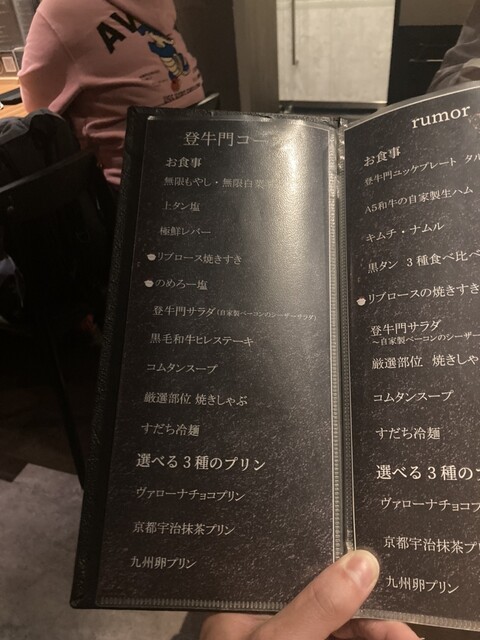 登牛門コー
お食事
無限もやし・無限白菜
上タン塩
極鮮レバー
リブロース焼きすき
のめろー塩
登牛門サラダ(自家製ベーコンのシーザーサラダ)
黒毛和牛ヒレステーキ
コムタンスープ
厳選部位 焼きしゃぶ
すだち冷麺
選べる3種のプリン
ヴァローナチョコプリン
京都宇治抹茶プリン
九州卵プリン
rumor
お食事
登牛門ユッケプレート タル
A5和牛の自家製生ハム
キムチ・ナムル
黒タン 3種食べ比べ
リブロースの焼きすき
登牛門サラダ
~自家製ベーコンのシーザー
厳選部位 焼きしゃ
コムタンスープ
すだち冷麺
選べる3種のプ
ヴァローナチョコプ
京都宇治抹茶プ
九州卵プリン